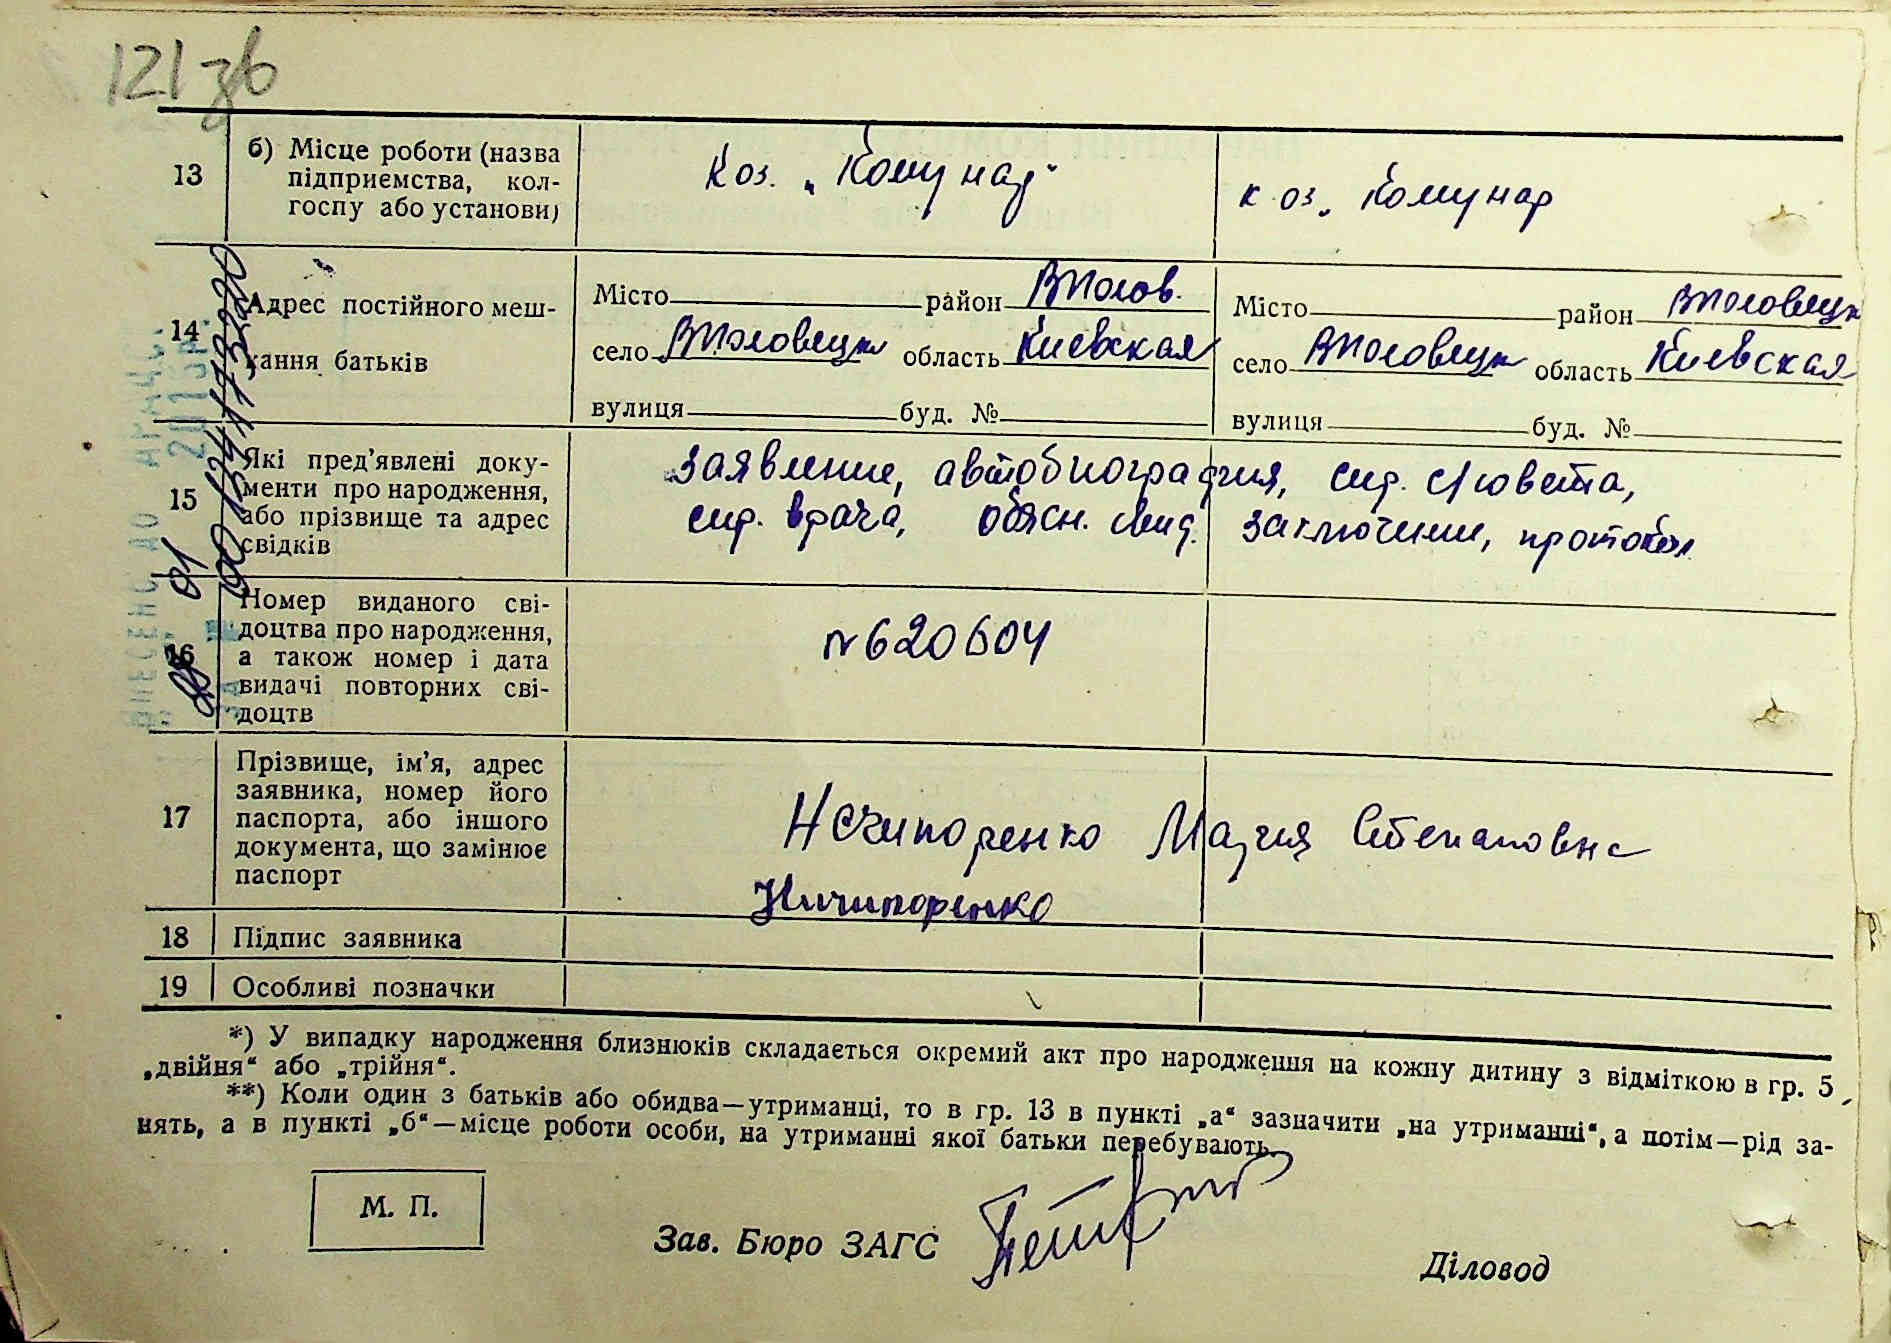 121 зв
13
б) Місце роботи (назва
підприємства, кол-
госпу або установи)
Коз. „Комунар“
к оз. „ Комунар
14
Адрес постійного меш-
кання батьків
Місто район ВПолов.
село ВПоловецк область Киевская
вулиця буд. №
Місто район ВПоловецк
село ВПоловецк область Киевская
вулиця буд. №
15
Які пред’явлені доку-
менти про народження,
або прізвище та адрес
свідків
заявление, автобиография, сид. с/совета,
сид. врача, обясн. свид. заключении, протокол
16
Номер виданого сві-
доцтва про народження,
а також номер і дата
видачі повторних сві-
доцтв
№620604
17
Прізвище, ім’я, адрес
заявника, номер його
паспорта, або іншого
документа, що замінює
паспорт
Нечипоренко Мария Степановна
Ничипоренко
18
Підпис заявника
19
Особливі позначки
*) У випадку народження близнюків складається окремий акт про народження на кожну дитину з відміткою в гр. 5
„двійня“ або „трійня“.
**) Коли один з батьків або обидва—утриманці, то в гр. 13 в пункті „а“ зазначити „на утриманні“, а потім—рід за-
нять, а в пункті „б“—місце роботи особи, на утриманні якої батьки перебувають.
М. П.
Зав. Бюро ЗАГС
Діловод